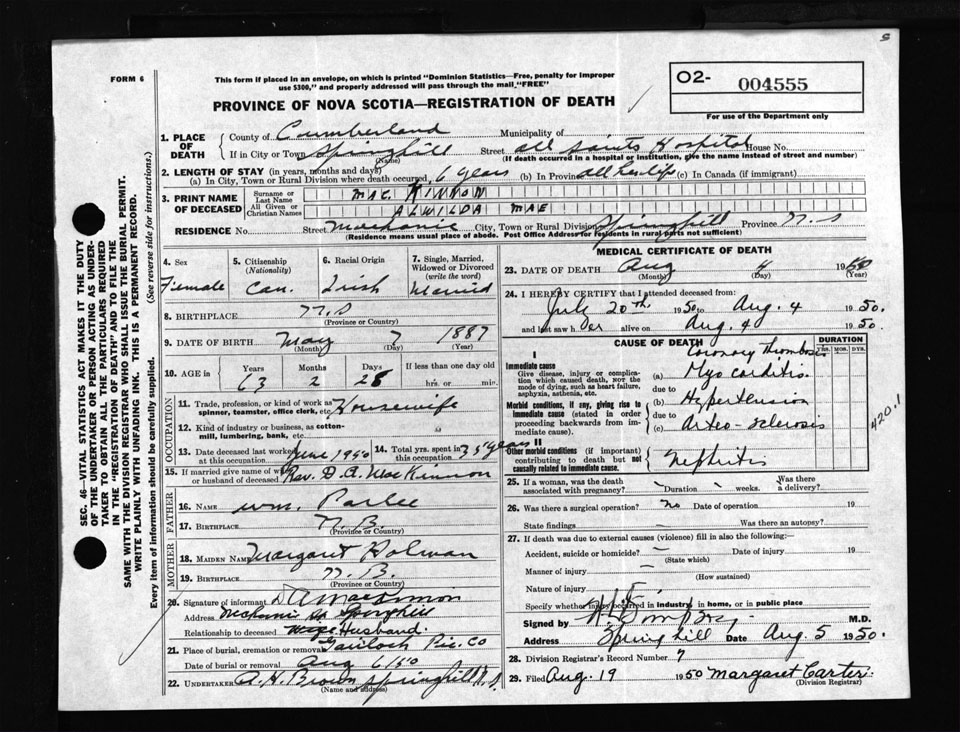 FORM 6
This form if placed in an envelope, on which is printed "Dominion Statistics—Free, penalty for improper
use $300," and properly addressed will pass through the mail "FREE"
PROVINCE OF NOVA SCOTIA—REGISTRATION OF DEATH
O2- 004555
For use of the Department only
1. PLACE OF DEATH
County of Cumberland Municipality of
If in City or Town Springhill Street All Saints Hospital House No.
(Name) (If death occurred in a hospital or institution, give the name instead of street and number)
2. LENGTH OF STAY (in years, months and days)
(a) In City, Town or Rural Division where death occurred 6 years (b) In Province all her life (c) In Canada (if immigrant)
3. PRINT NAME OF DECEASED
Surname or Last Name MAC KINNON
All Given or Christian Names ALWILDA MAE
RESIDENCE No. Street Mechanic City, Town or Rural Division Springhill Province N.S
(Residence means usual place of abode. Post Office Address for residents in rural parts not sufficient)
4. Sex Female
5. Citizenship (Nationality) Can.
6. Racial Origin Irish
7. Single, Married, Widowed or Divorced (write the word) Married
8. BIRTHPLACE N.S
(Province or Country)
9. DATE OF BIRTH May 7 1887
(Month) (Day) (Year)
10. AGE in Years Months Days If less than one day old
63 2 28 hrs. or min.
OCCUPATION
11. Trade, profession, or kind of work as spinner, teamster, office clerk, etc. Housewife
12. Kind of industry or business, as cotton-mill, lumbering, bank, etc.
13. Date deceased last worked at this occupation June 1950
14. Total yrs. spent in this occupation 35 years
15. If married give name of wife or husband of deceased Rev. D. A. MacKinnon
FATHER
16. NAME Wm. Parlee
17. BIRTHPLACE N. B.
(Province or Country)
MOTHER
18. MAIDEN NAME Margaret Holman
19. BIRTHPLACE N. B.
(Province or Country)
20. Signature of informant D A MacKinnon
Address Mechanic St Springhill
Relationship to deceased Husband
21. Place of burial, cremation or removal Gairloch Pic. Co
Date of burial or removal Aug 6/50
22. UNDERTAKER A. H. Brown Springhill N.S.
(Name and address)
MEDICAL CERTIFICATE OF DEATH
23. DATE OF DEATH Aug 4 1950
(Month) (Day) (Year)
24. I HEREBY CERTIFY that I attended deceased from:
July 20th 1950 to Aug. 4 1950.
and last saw her alive on Aug. 4 1950.
CAUSE OF DEATH
DURATION
YRS. MOS. DYS.
I
Immediate cause
Give disease, injury or complication which caused death, NOT the mode of dying, such as heart failure, asphyxia, asthenia, etc.
Coronary Thrombosis
(a) Myocarditis
due to
Morbid conditions, if any, giving rise to immediate cause (stated in order proceeding backwards from immediate cause).
(b) Hypertension
due to
(c) Arteo-sclerosis
420.1
II
Other morbid conditions (if important) contributing to death but not causally related to immediate cause.
Nephritis
25. If a woman, was the death associated with pregnancy? Duration weeks. Was there a delivery?
26. Was there a surgical operation? no Date of operation 19
State findings Was there an autopsy?
27. If death was due to external causes (violence) fill in also the following:—
Accident, suicide or homicide? Date of injury 19
(State which)
Manner of injury
(How sustained)
Nature of injury
Specify whether injury occurred in industry, in home, or in public place
Signed by M.D.
Address Springhill Date Aug. 5 1950.
28. Division Registrar's Record Number 7
29. Filed Aug. 19 1950 Margaret Carter.
(Division Registrar)
SEC. 46—VITAL STATISTICS ACT MAKES IT THE DUTY
OF THE UNDERTAKER OR PERSON ACTING AS UNDER-
TAKER TO OBTAIN ALL THE PARTICULARS REQUIRED
IN THE "REGISTRATION OF DEATH" AND TO FILE THE
SAME WITH THE DIVISION REGISTRAR WHO SHALL ISSUE THE BURIAL PERMIT.
WRITE PLAINLY WITH UNFADING INK. THIS IS A PERMANENT RECORD.
Every item of information should be carefully supplied. (See reverse side for instructions.)